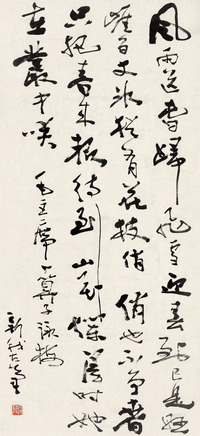 風雨送春歸飛雪迎春到已是懸
崖百丈冰猶有花枝俏俏也不爭春
只把春來報待到山花爛漫時她
在叢中咲 毛主席卜算子詠梅
新我左筆